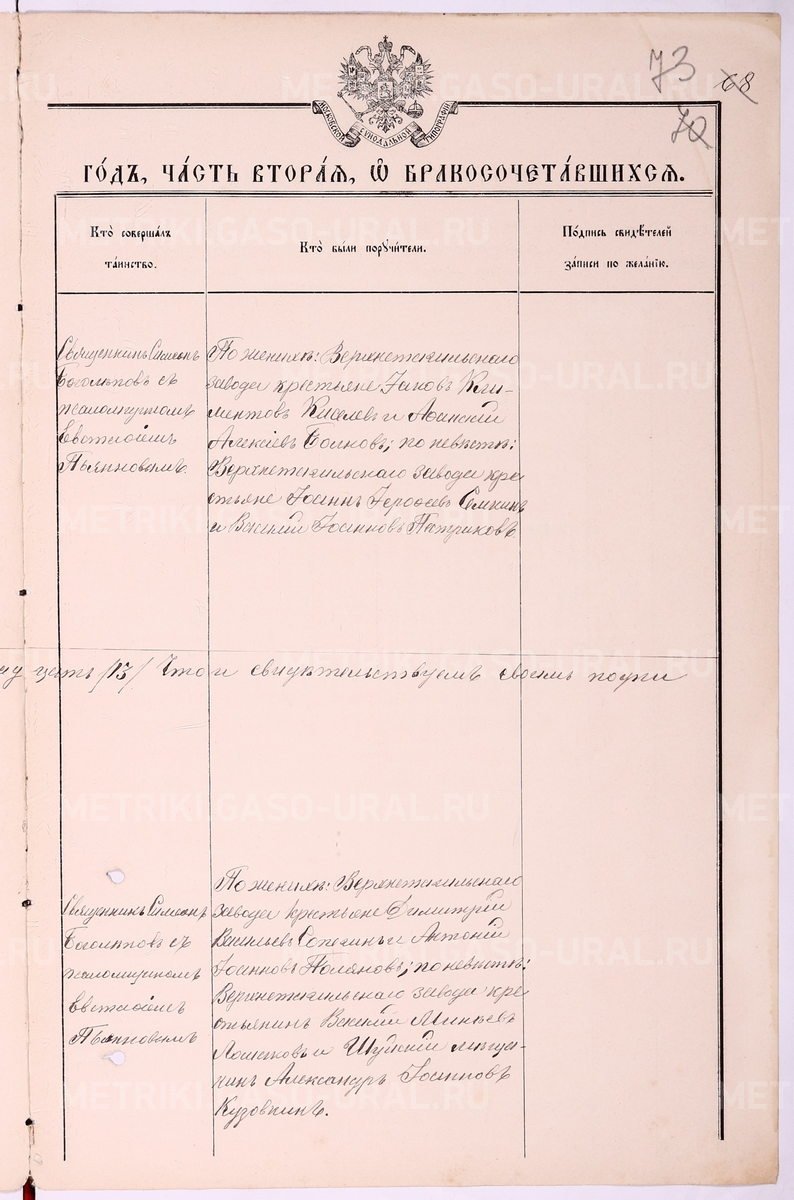 73
68
70
МОСКОВСКОЙ СѴНОДАЛЬНОЙ ТИПОГРАФІИ
ГО́ДЪ, ЧА́СТЬ ВТОРА́Я, Ѽ БРАКОСОЧЕТА́ВШИХСЯ.
Кто̀ соверша́лъ
та́инство.
Кто̀ бы́ли пору́чители.
По́дпись свидѣ́телей
за́писи по жела́нію.
Священникъ Симеонъ
Боголѣповъ съ
псаломщикомъ
Евстаѳіемъ
Пьянковымъ.
По женихѣ: Верхнетагильскаго
завода крестьяне Іаковъ Кли-
ментовъ Киселевъ и
Алексіевъ; по невѣстѣ:
Верхнетагильскаго завода кре-
стьяне Іоаннъ Іероѳеевъ Семкинъ
и Василій Іоанновъ Патраковъ
/13/ Что и свидѣтельствуемъ своимъ
Священникъ Симеонъ
Боголѣповъ съ
псаломщикомъ
Евстаѳіемъ
Пьянковымъ
По женихѣ: Верхнетагильскаго
завода крестьяне Димитрій
Васильевъ и Антоній
Іоанновъ Поляковъ; по невѣстѣ:
Верхнетагильскаго завода кре-
стьянинъ Василій
и Шуйскій мѣща-
нинъ Александръ Іоанновъ
Кузовкинъ.
METRIKI.GASO-URAL.RU